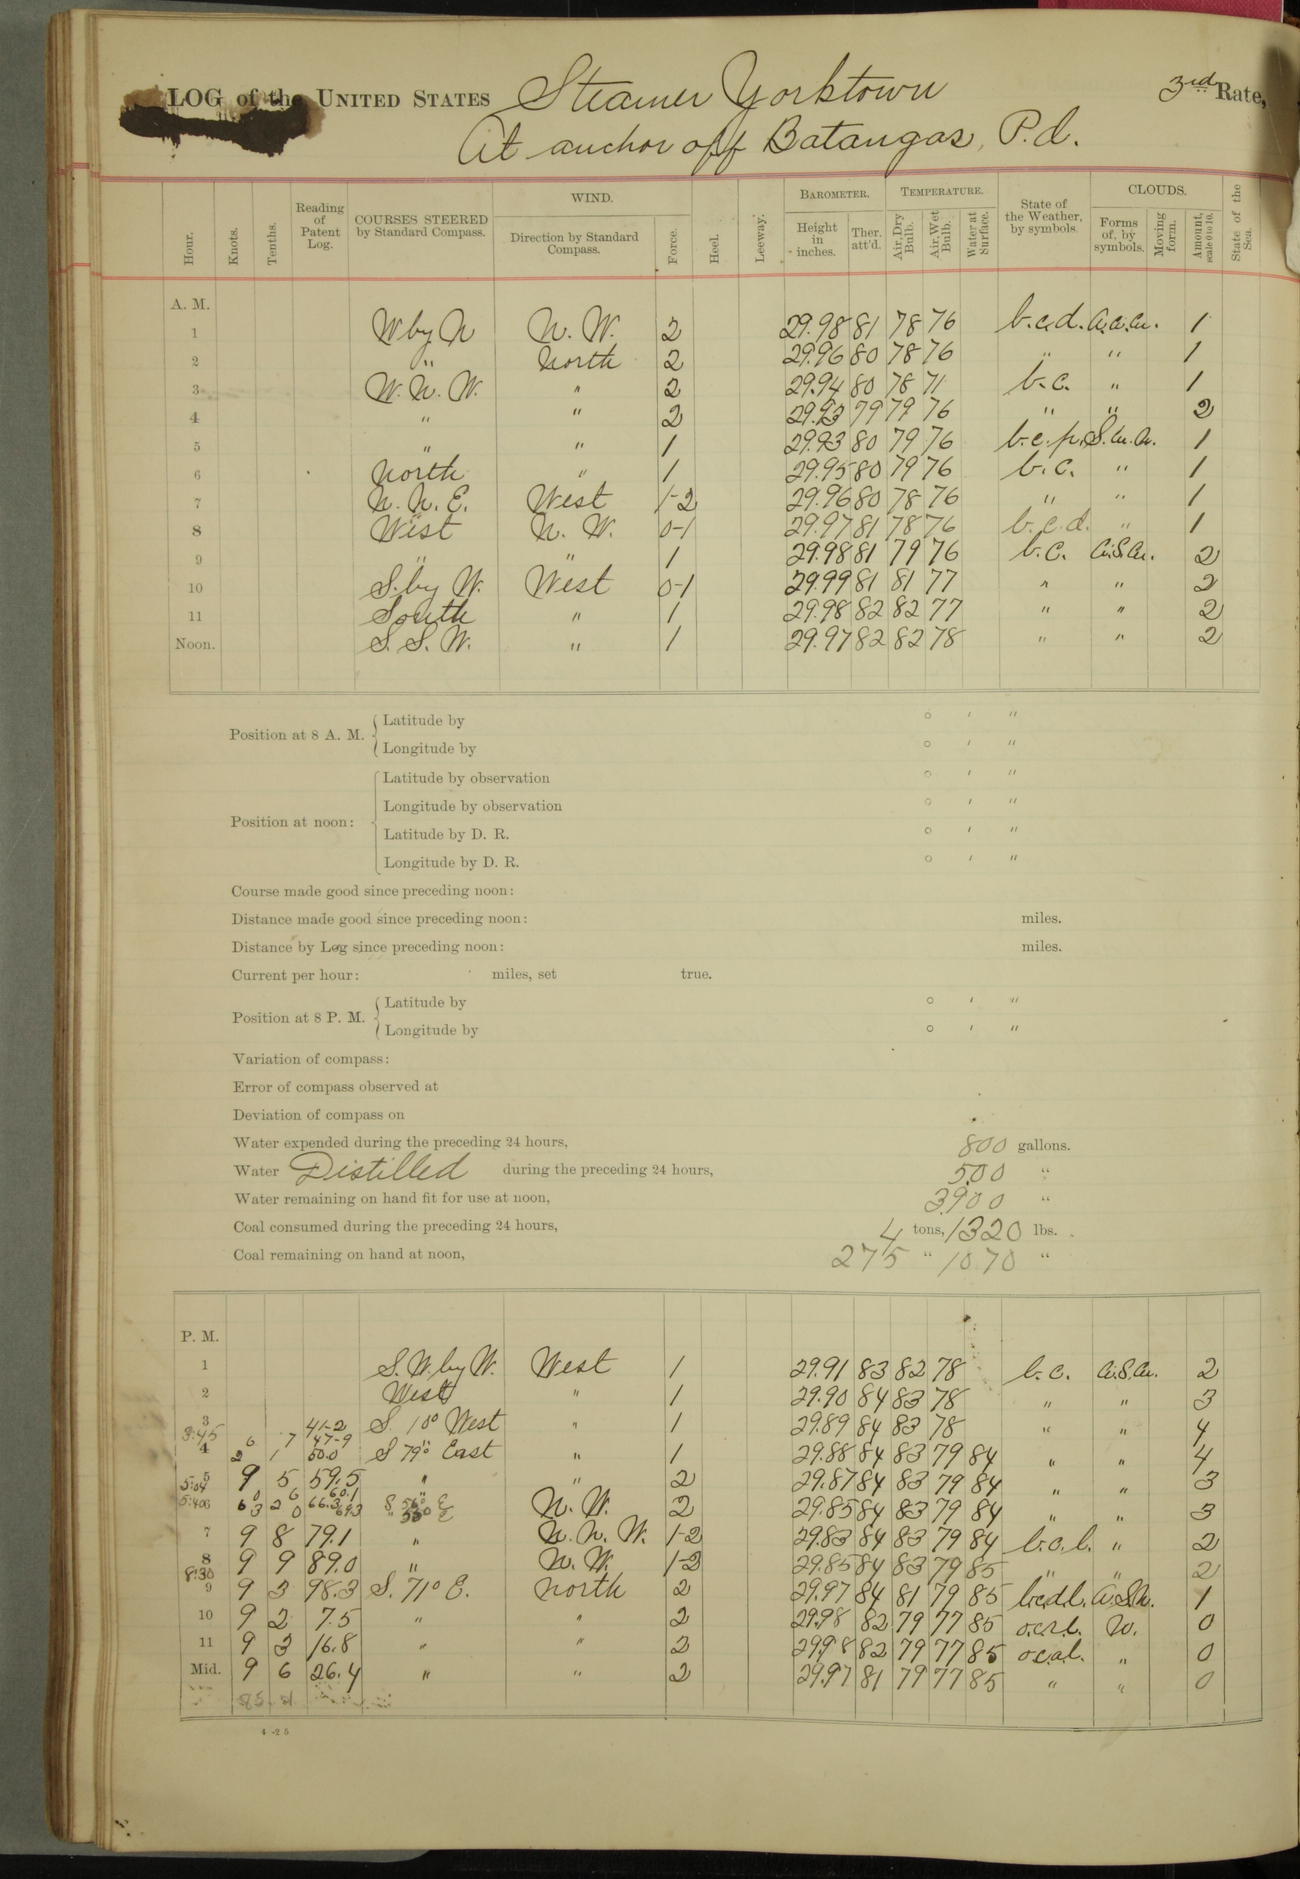 LOG of the UNITED STATES Steamer Yorktown 3rd Rate,
At anchor off Batangas, P.I.
Hour. Knots. Tenths. Reading of Patent Log. COURSES STEERED by Standard Compass. WIND. Direction by Standard Compass. Force. Heel. Leeway. BAROMETER. Height in inches. Ther. att'd. TEMPERATURE. Air, Dry Bulb. Air, Wet Bulb. Water at Surface. State of the Weather, by symbols. CLOUDS. Forms of, by symbols. Moving form. Amount, scale 0 to 10. State of the Sea.
A. M.
1 W by N N. W. 2 29.98 81 78 76 b.c.d. 1
2 " North 2 29.96 80 78 76 " " 1
3 W. N. W. " 2 29.94 80 78 71 b.c. " 1
4 " " 2 29.93 79 79 76 " " 2
5 " " 1 29.93 80 79 76 b.c.p. 1
6 North " 1 29.95 80 79 76 b.c. " 1
7 N. N. E. West 1-2 29.96 80 78 76 " " 1
8 West N. W. 0-1 29.97 81 78 76 b.c.d. " 1
9 " " 1 29.98 81 79 76 b.c. 2
10 S. by W. West 0-1 29.99 81 81 77 " " 2
11 South " 1 29.98 82 82 77 " " 2
Noon. S. S. W. " 1 29.97 82 82 78 " " 2
Position at 8 A. M. Latitude by ° ' "
Longitude by ° ' "
Position at noon: Latitude by observation ° ' "
Longitude by observation ° ' "
Latitude by D. R. ° ' "
Longitude by D. R. ° ' "
Course made good since preceding noon:
Distance made good since preceding noon: miles.
Distance by Log since preceding noon: miles.
Current per hour: miles, set true.
Position at 8 P. M. Latitude by ° ' "
Longitude by ° ' "
Variation of compass:
Error of compass observed at
Deviation of compass on
Water expended during the preceding 24 hours, 800 gallons.
Water Distilled during the preceding 24 hours, 500 "
Water remaining on hand fit for use at noon, 3900 "
Coal consumed during the preceding 24 hours, 4 tons, 1320 lbs.
Coal remaining on hand at noon, 275 " 1070 "
P. M.
1 S. W. by W. West 1 29.91 83 82 78 b.c. 2
2 West " 1 29.90 84 83 78 " " 3
3 41-2 S. 10° West " 1 29.89 84 83 78 " " 4
3:45 6 7 47-9
4 2 1 50.0 S 79° East " 1 29.88 84 83 79 84 " " 4
5 9 5 59.5 " " 2 29.87 84 83 79 84 " " 3
5:04 0 6 60.1
6 2 66.3 N. W. 2 29.85 84 83 79 84 " " 3
3 0 69.3
7 9 8 79.1 " N. N. W. 1-2 29.83 84 83 79 84 b.c.l. " 2
8 9 9 89.0 " N. W. 1-2 29.85 84 83 79 85 " " 2
8:30
9 9 3 98.3 S. 71° E. North 2 29.97 84 81 79 85 1
10 9 2 7.5 " " 2 29.98 82 79 77 85 N. 0
11 9 3 16.8 " " 2 29.98 82 79 77 85 " 0
Mid. 9 6 26.4 " " 2 29.97 81 79 77 85 " " 0
4-25